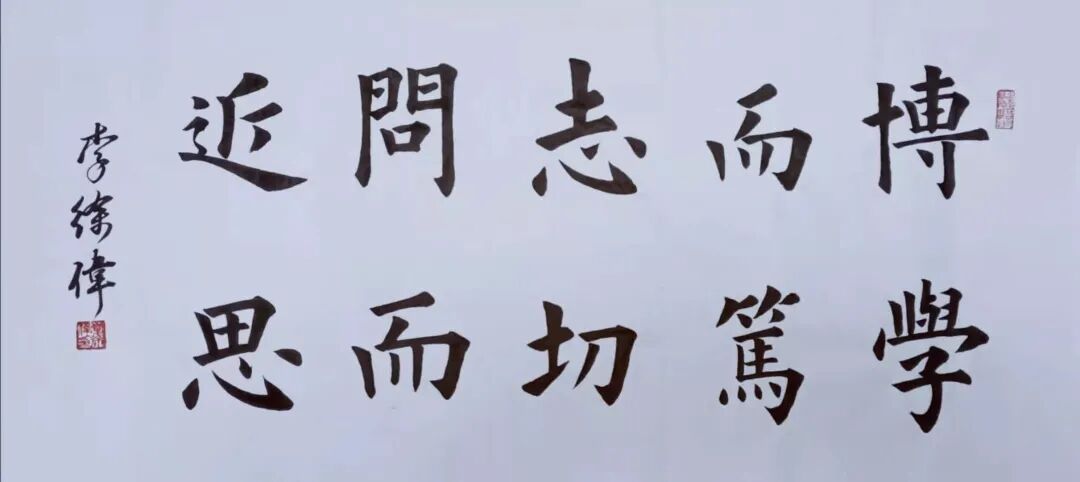 博學
而篤
志切
問而
近思
李徐偉